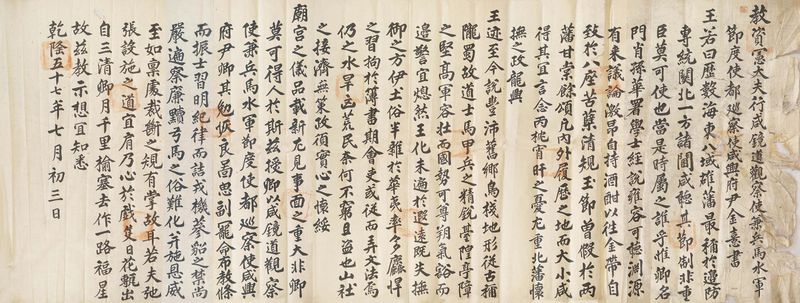 教資憲大夫行咸鏡道觀察使兼兵馬水軍
節度使都巡察使咸興府尹金憙書
王若曰歷數海東八域雄藩最稱於邊防
專統關北一方諸閫咸聽其節制非重
臣莫可使也當是時屬之誰乎惟卿名
門肖孫華署學士經說雍容可聽淵源
有來議論激昂自持酒酣以往金帶自
致於八座苦蘗清規玉節曾假於兩
藩甘棠餘頌凡內外履歷之地而大小咸
得其宜言念丙枕宵旰之憂尤重北藩懷
撫之政龍興
王迹至今說豐沛舊鄉鳥棧地形從古稱
隴蜀故道士馬甲兵之精銳臺隍亭障
之堅高軍容壯而國勢可尊朔氣豁而
邊警宜熄然王化未遍於遐遠既失撫
御之方伊土俗半雜於華夷率多麤悍
之習拘於簿書期會吏或從而弄文法爲
仍之水旱荒民奉何不窮且盜也山社
之接濟無策政須實心之懷綏
廟宮之儀品載新尤見事面之重大非卿
莫可得人於斯茲授卿以咸鏡道觀察
使兼兵馬水軍節度使都巡察使咸興
府尹卿其勉恢良啚思副寵命布教條
而振士習明紀律而詰戎機蔘貂之禁尚
嚴遍察廉黷弓馬之俗難化并施恩威
至如稟處裁斷之規有掌故耳若夫弛
張設施之道宜肩乃心於戱雙日花甎出
自三清卿月千里榆塞去作一路福星
故茲教示想宜知悉
乾隆五十七年七月初三日